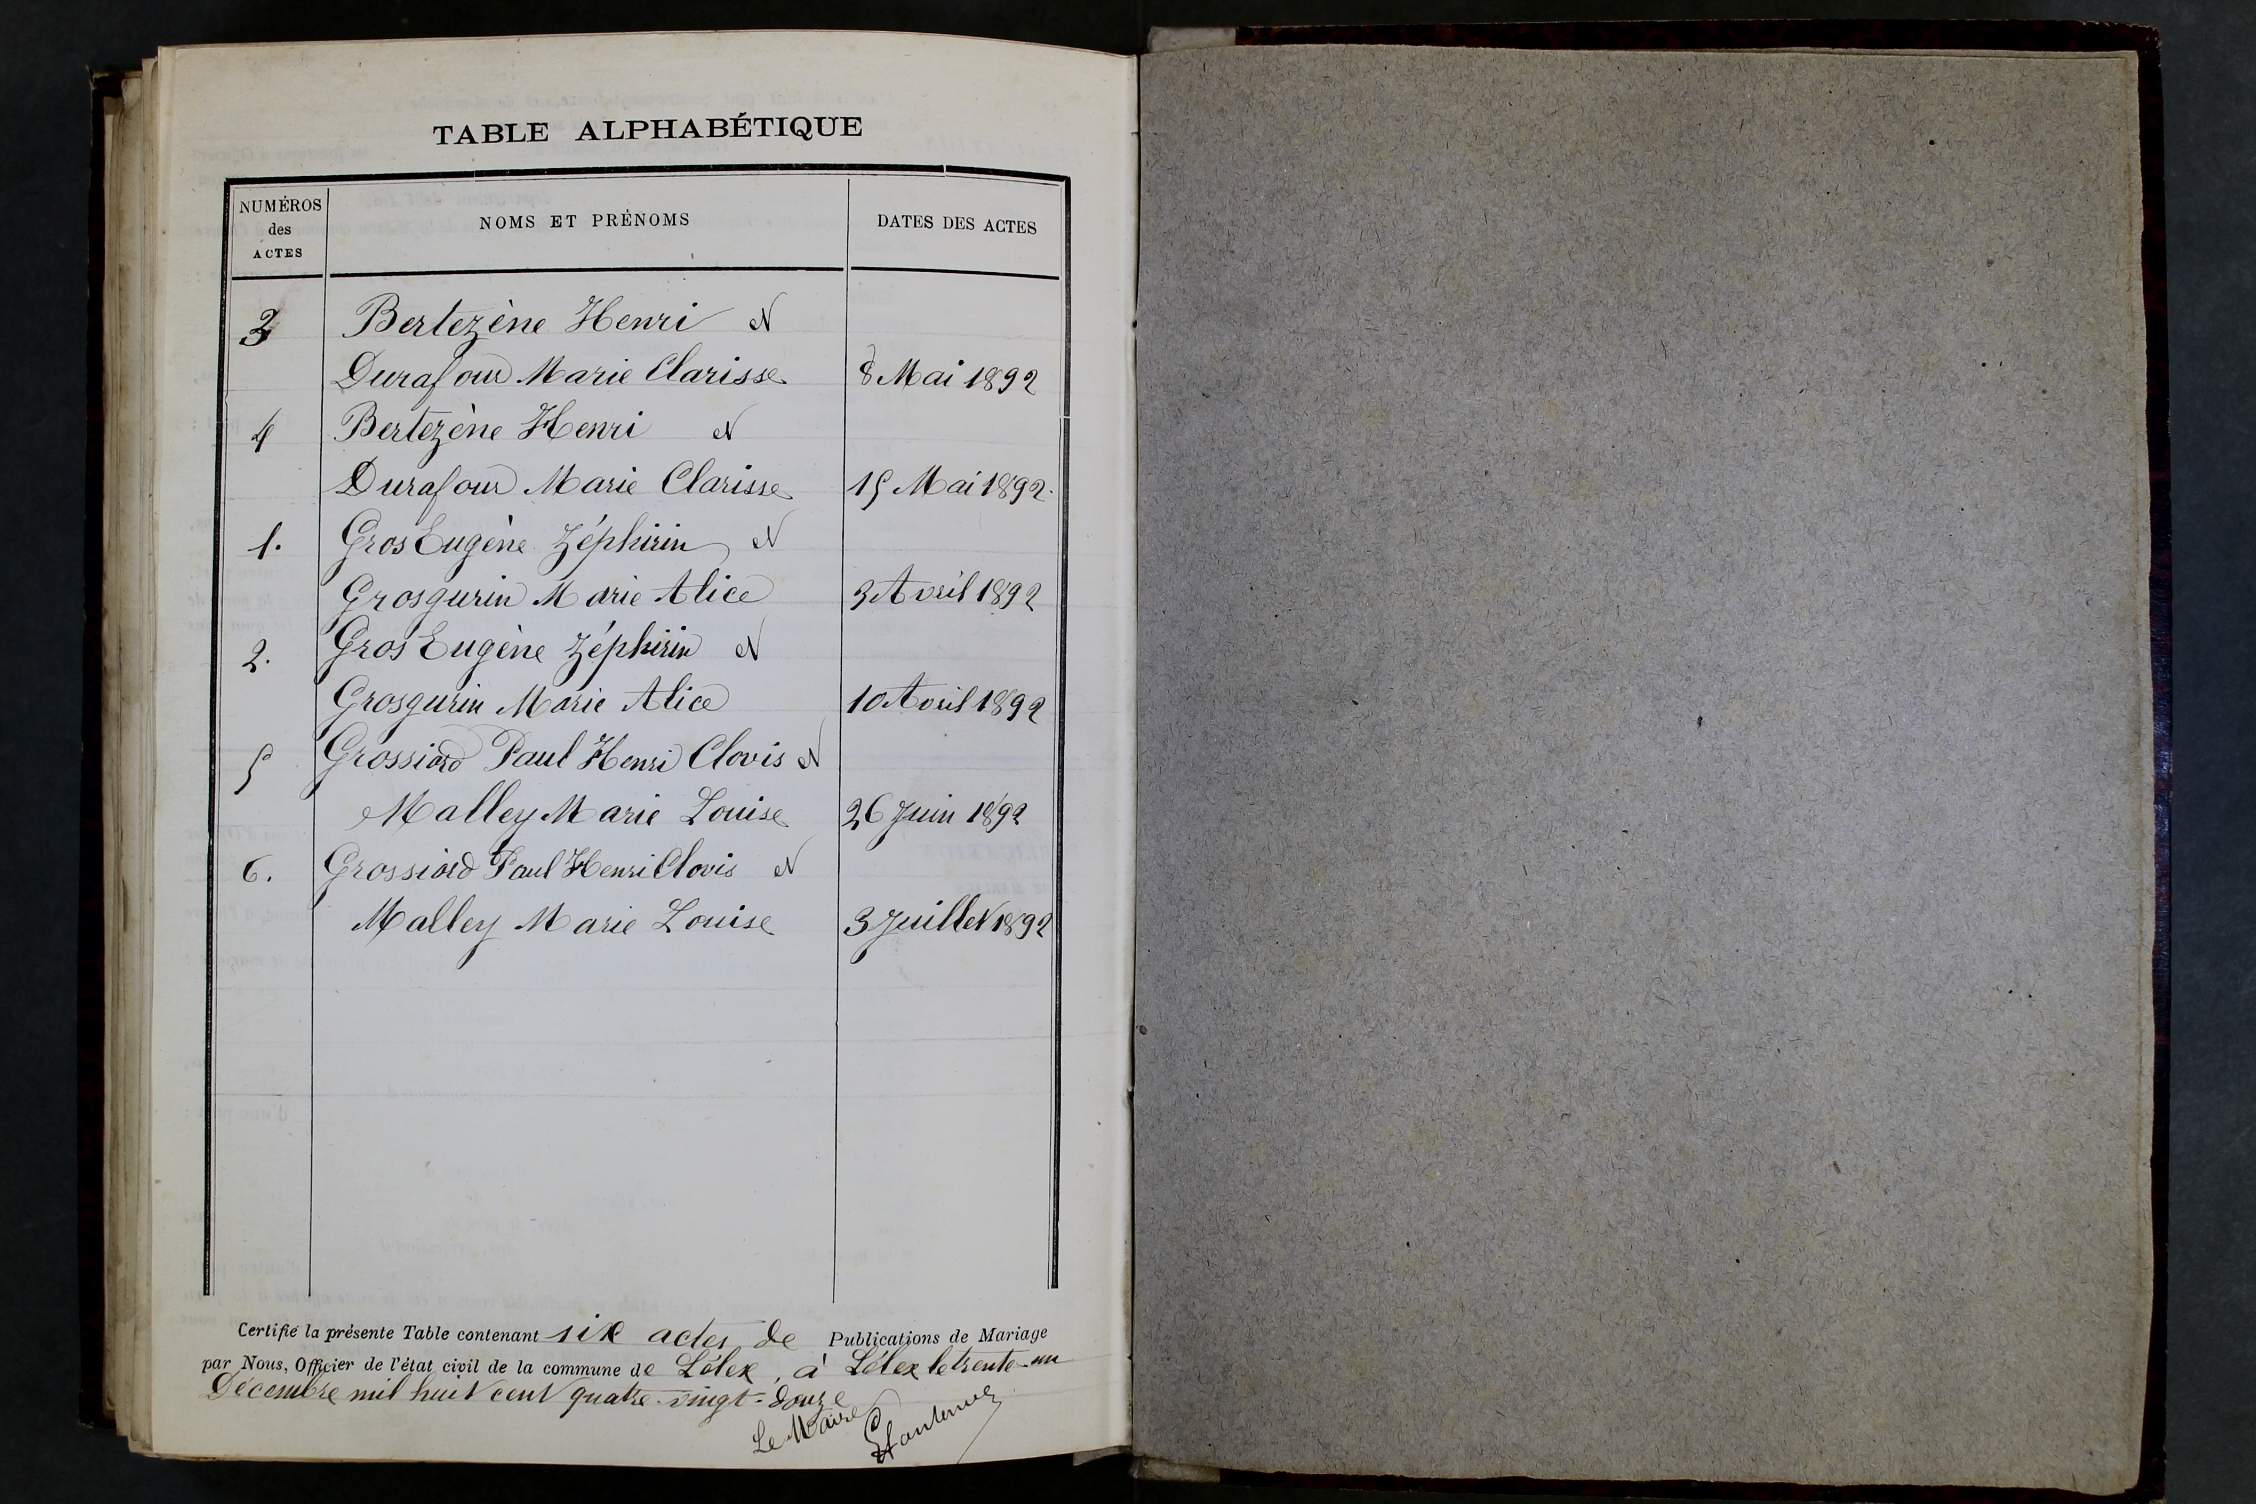 TABLE ALPHABÉTIQUE
NUMÉROS
des
ACTES
NOMS ET PRÉNOMS
DATES DES ACTES
3 Bertezène Henri et
Durafour Marie Clarisse 8 Mai 1892
4 Bertezène Henri et
Durafour Marie Clarisse 15 Mai 1892.
1. Gros Eugène Zéphirin et
Grosgurin Marie Alice 3 Avril 1892
2. Gros Eugène Zéphirin et
Grosgurin Marie Alice 10 Avril 1892
5 Grossiord Paul Henri Clovis et
Malley Marie Louise 26 Juin 1892
6. Grossiord Paul Henri Clovis et
Malley Marie Louise 3 Juillet 1892
Certifié la présente Table contenant six actes de Publications de Mariage
par Nous, Officier de l'état civil de la commune de Lélex, à Lélex le trente-un
Décembre mil huit cent quatre-vingt-douze
Le Maire